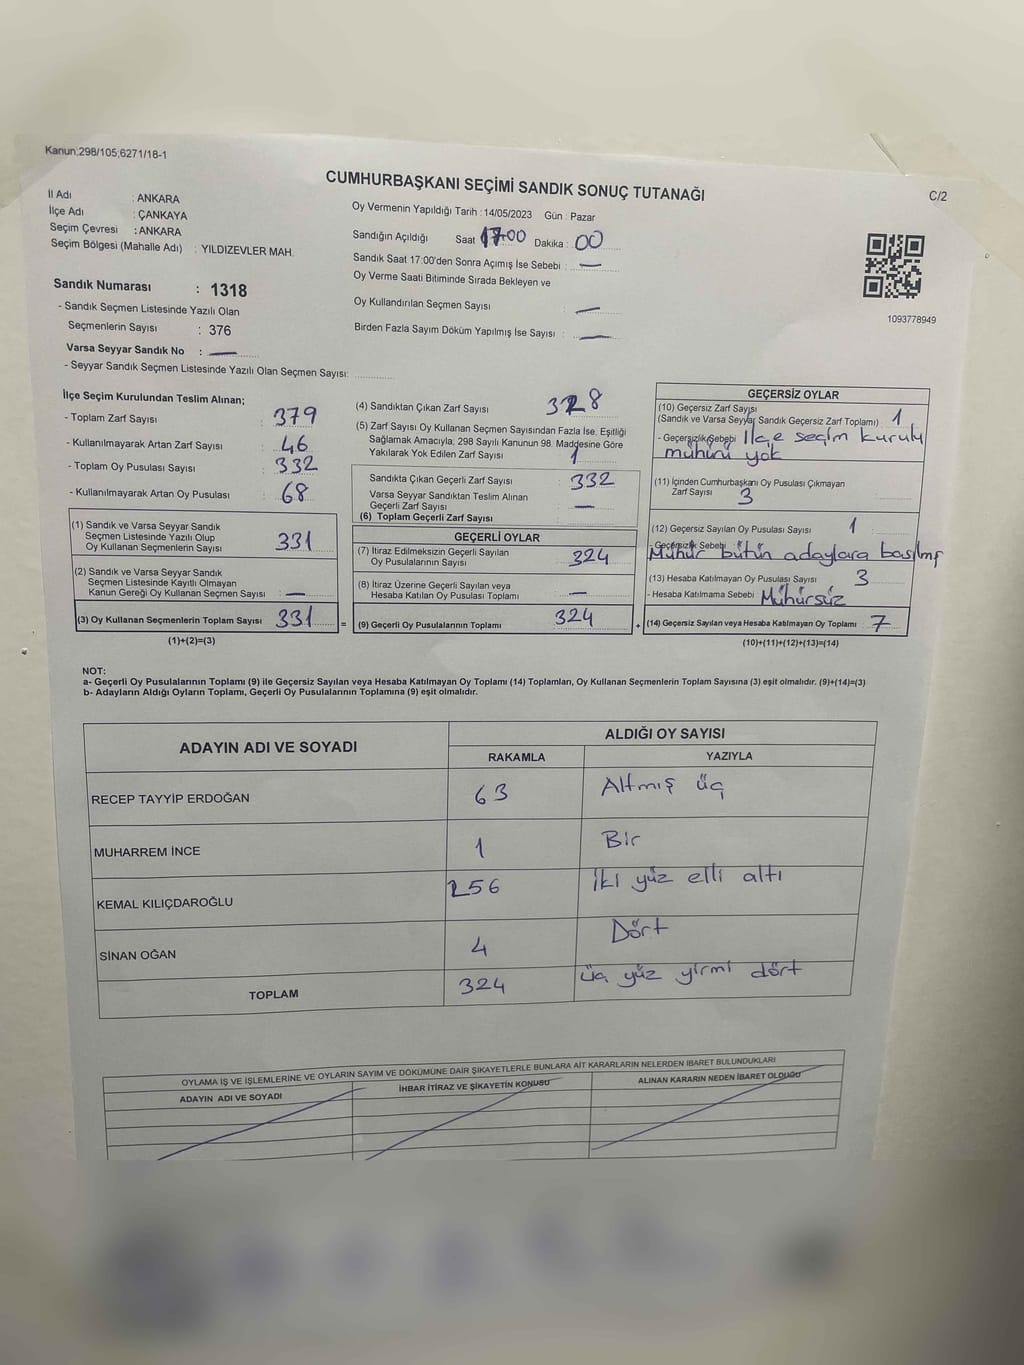 Kanun;298/105;6271/18-1
CUMHURBAŞKANI SEÇİMİ SANDIK SONUÇ TUTANAĞI
C/2
İl Adı : ANKARA
İlçe Adı : ÇANKAYA
Seçim Çevresi : ANKARA
Seçim Bölgesi (Mahalle Adı) : YILDIZEVLER MAH.
Oy Vermenin Yapıldığı Tarih : 14/05/2023 Gün : Pazar
Sandığın Açıldığı Saat 17:00 Dakika : 00
Sandık Saat 17:00'den Sonra Açımış İse Sebebi : —
Oy Verme Saati Bitiminde Sırada Bekleyen ve
Oy Kullandırılan Seçmen Sayısı —
Birden Fazla Sayım Döküm Yapılmış İse Sayısı : —
1093778949
Sandık Numarası : 1318
- Sandık Seçmen Listesinde Yazılı Olan
Seçmenlerin Sayısı : 376
Varsa Seyyar Sandık No : —
- Seyyar Sandık Seçmen Listesinde Yazılı Olan Seçmen Sayısı:
İlçe Seçim Kurulundan Teslim Alınan;
- Toplam Zarf Sayısı : 379
- Kullanılmayarak Artan Zarf Sayısı : 46
- Toplam Oy Pusulası Sayısı : 332
- Kullanılmayarak Artan Oy Pusulası : 68
(1) Sandık ve Varsa Seyyar Sandık
Seçmen Listesinde Yazılı Olup
Oy Kullanan Seçmenlerin Sayısı : 331
(2) Sandık ve Varsa Seyyar Sandık
Seçmen Listesinde Kayıtlı Olmayan
Kanun Gereği Oy Kullanan Seçmen Sayısı : —
(3) Oy Kullanan Seçmenlerin Toplam Sayısı : 331 =
(1)+(2)=(3)
(4) Sandıktan Çıkan Zarf Sayısı : 328
(5) Zarf Sayısı Oy Kullanan Seçmen Sayısından Fazla İse, Eşitliği
Sağlamak Amacıyla; 298 Sayılı Kanunun 98. Maddesine Göre
Yakılarak Yok Edilen Zarf Sayısı : 1
Sandıkta Çıkan Geçerli Zarf Sayısı : 332
Varsa Seyyar Sandıktan Teslim Alınan
Geçerli Zarf Sayısı : —
(6) Toplam Geçerli Zarf Sayısı :
GEÇERLİ OYLAR
(7) İtiraz Edilmeksizin Geçerli Sayılan
Oy Pusulalarının Sayısı : 324
(8) İtiraz Üzerine Geçerli Sayılan veya
Hesaba Katılan Oy Pusulası Toplamı : —
(9) Geçerli Oy Pusulalarının Toplamı : 324 +
GEÇERSİZ OYLAR
(10) Geçersiz Zarf Sayısı
(Sandık ve Varsa Seyyar Sandık Geçersiz Zarf Toplamı) : 1
- Geçersizlik Sebebi : İlçe seçim kurulu
mühürü yok
(11) İçinden Cumhurbaşkanı Oy Pusulası Çıkmayan
Zarf Sayısı 3
(12) Geçersiz Sayılan Oy Pusulası Sayısı : 1
- Geçersizlik Sebebi :
Mühür bütün adaylara basılmış
(13) Hesaba Katılmayan Oy Pusulası Sayısı : 3
- Hesaba Katılmama Sebebi : Mühürsüz
(14) Geçersiz Sayılan veya Hesaba Katılmayan Oy Toplamı : 7
(10)+(11)+(12)+(13)=(14)
NOT:
a- Geçerli Oy Pusulalarının Toplamı (9) ile Geçersiz Sayılan veya Hesaba Katılmayan Oy Toplamı (14) Toplamları, Oy Kullanan Seçmenlerin Toplam Sayısına (3) eşit olmalıdır. (9)+(14)=(3)
b- Adayların Aldığı Oyların Toplamı, Geçerli Oy Pusulalarının Toplamına (9) eşit olmalıdır.
ADAYIN ADI VE SOYADI ALDIĞI OY SAYISI
RAKAMLA YAZIYLA
RECEP TAYYİP ERDOĞAN 63 Altmış üç
MUHARREM İNCE 1 Bir
KEMAL KILIÇDAROĞLU 256 İki yüz elli altı
SİNAN OĞAN 4 Dört
TOPLAM 324 üç yüz yirmi dört
OYLAMA İŞ VE İŞLEMLERİNE VE OYLARIN SAYIM VE DÖKÜMÜNE DAİR ŞİKAYETLERLE BUNLARA AİT KARARLARIN NELERDEN İBARET BULUNDUKLARI
ADAYIN ADI VE SOYADI İHBAR İTİRAZ VE ŞİKAYETİN KONUSU ALINAN KARARIN NEDEN İBARET OLDUĞU